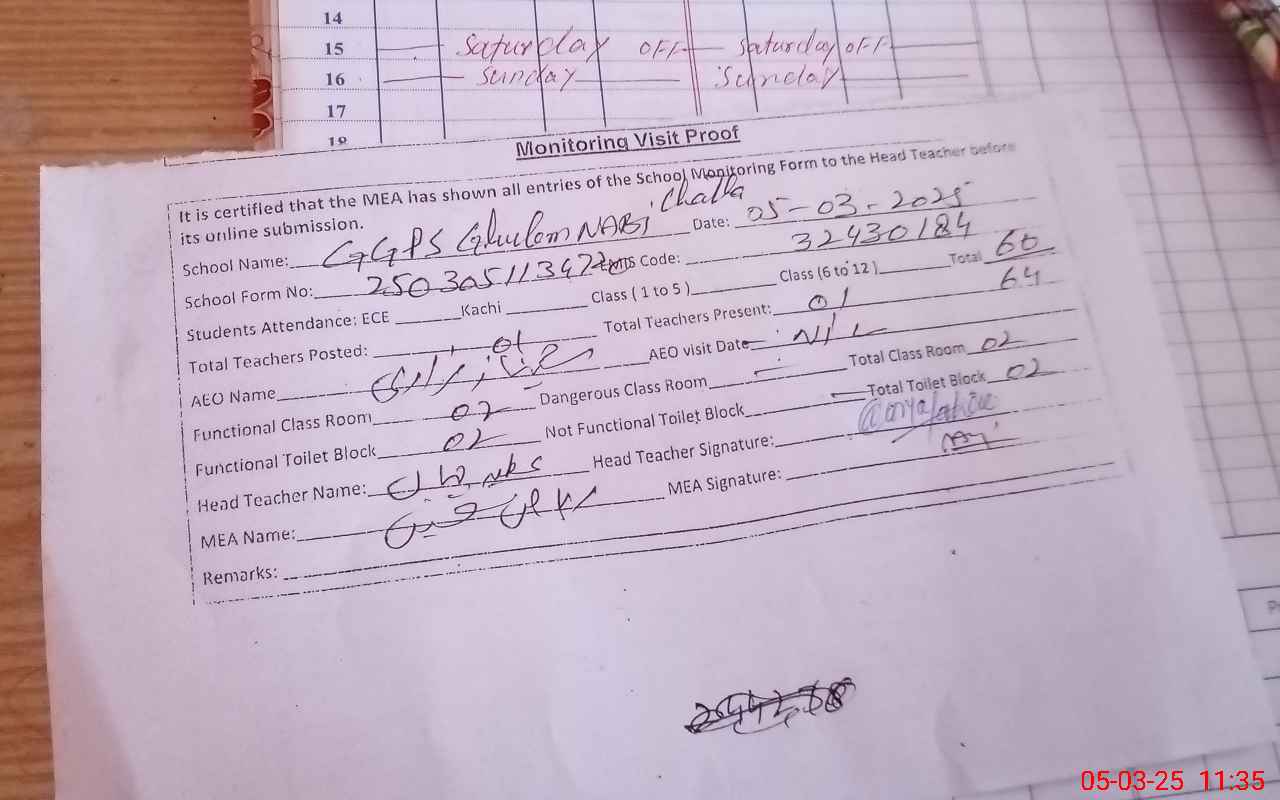 14
15 Saturday OFF Saturday OFF
16 Sunday Sunday
17
18
Monitoring Visit Proof
It is certified that the MEA has shown all entries of the School Monitoring Form to the Head Teacher before
its online submission.
School Name: GGPS Ghulam NABi Chatta Date: 05-03-2025
School Form No: EMIS Code: 32430184
Students Attendance: ECE Kachi Class ( 1 to 5 ) Class (6 to 12 ) Total 60
64
Total Teachers Posted: 01 Total Teachers Present: 01
AEO Name AEO visit Date Nil
Functional Class Room 02 Dangerous Class Room Total Class Room 02
Functional Toilet Block 02 Not Functional Toilet Block Total Toilet Block 02
Head Teacher Name: Head Teacher Signature:
MEA Name: MEA Signature:
Remarks:
05-03-25 11:35